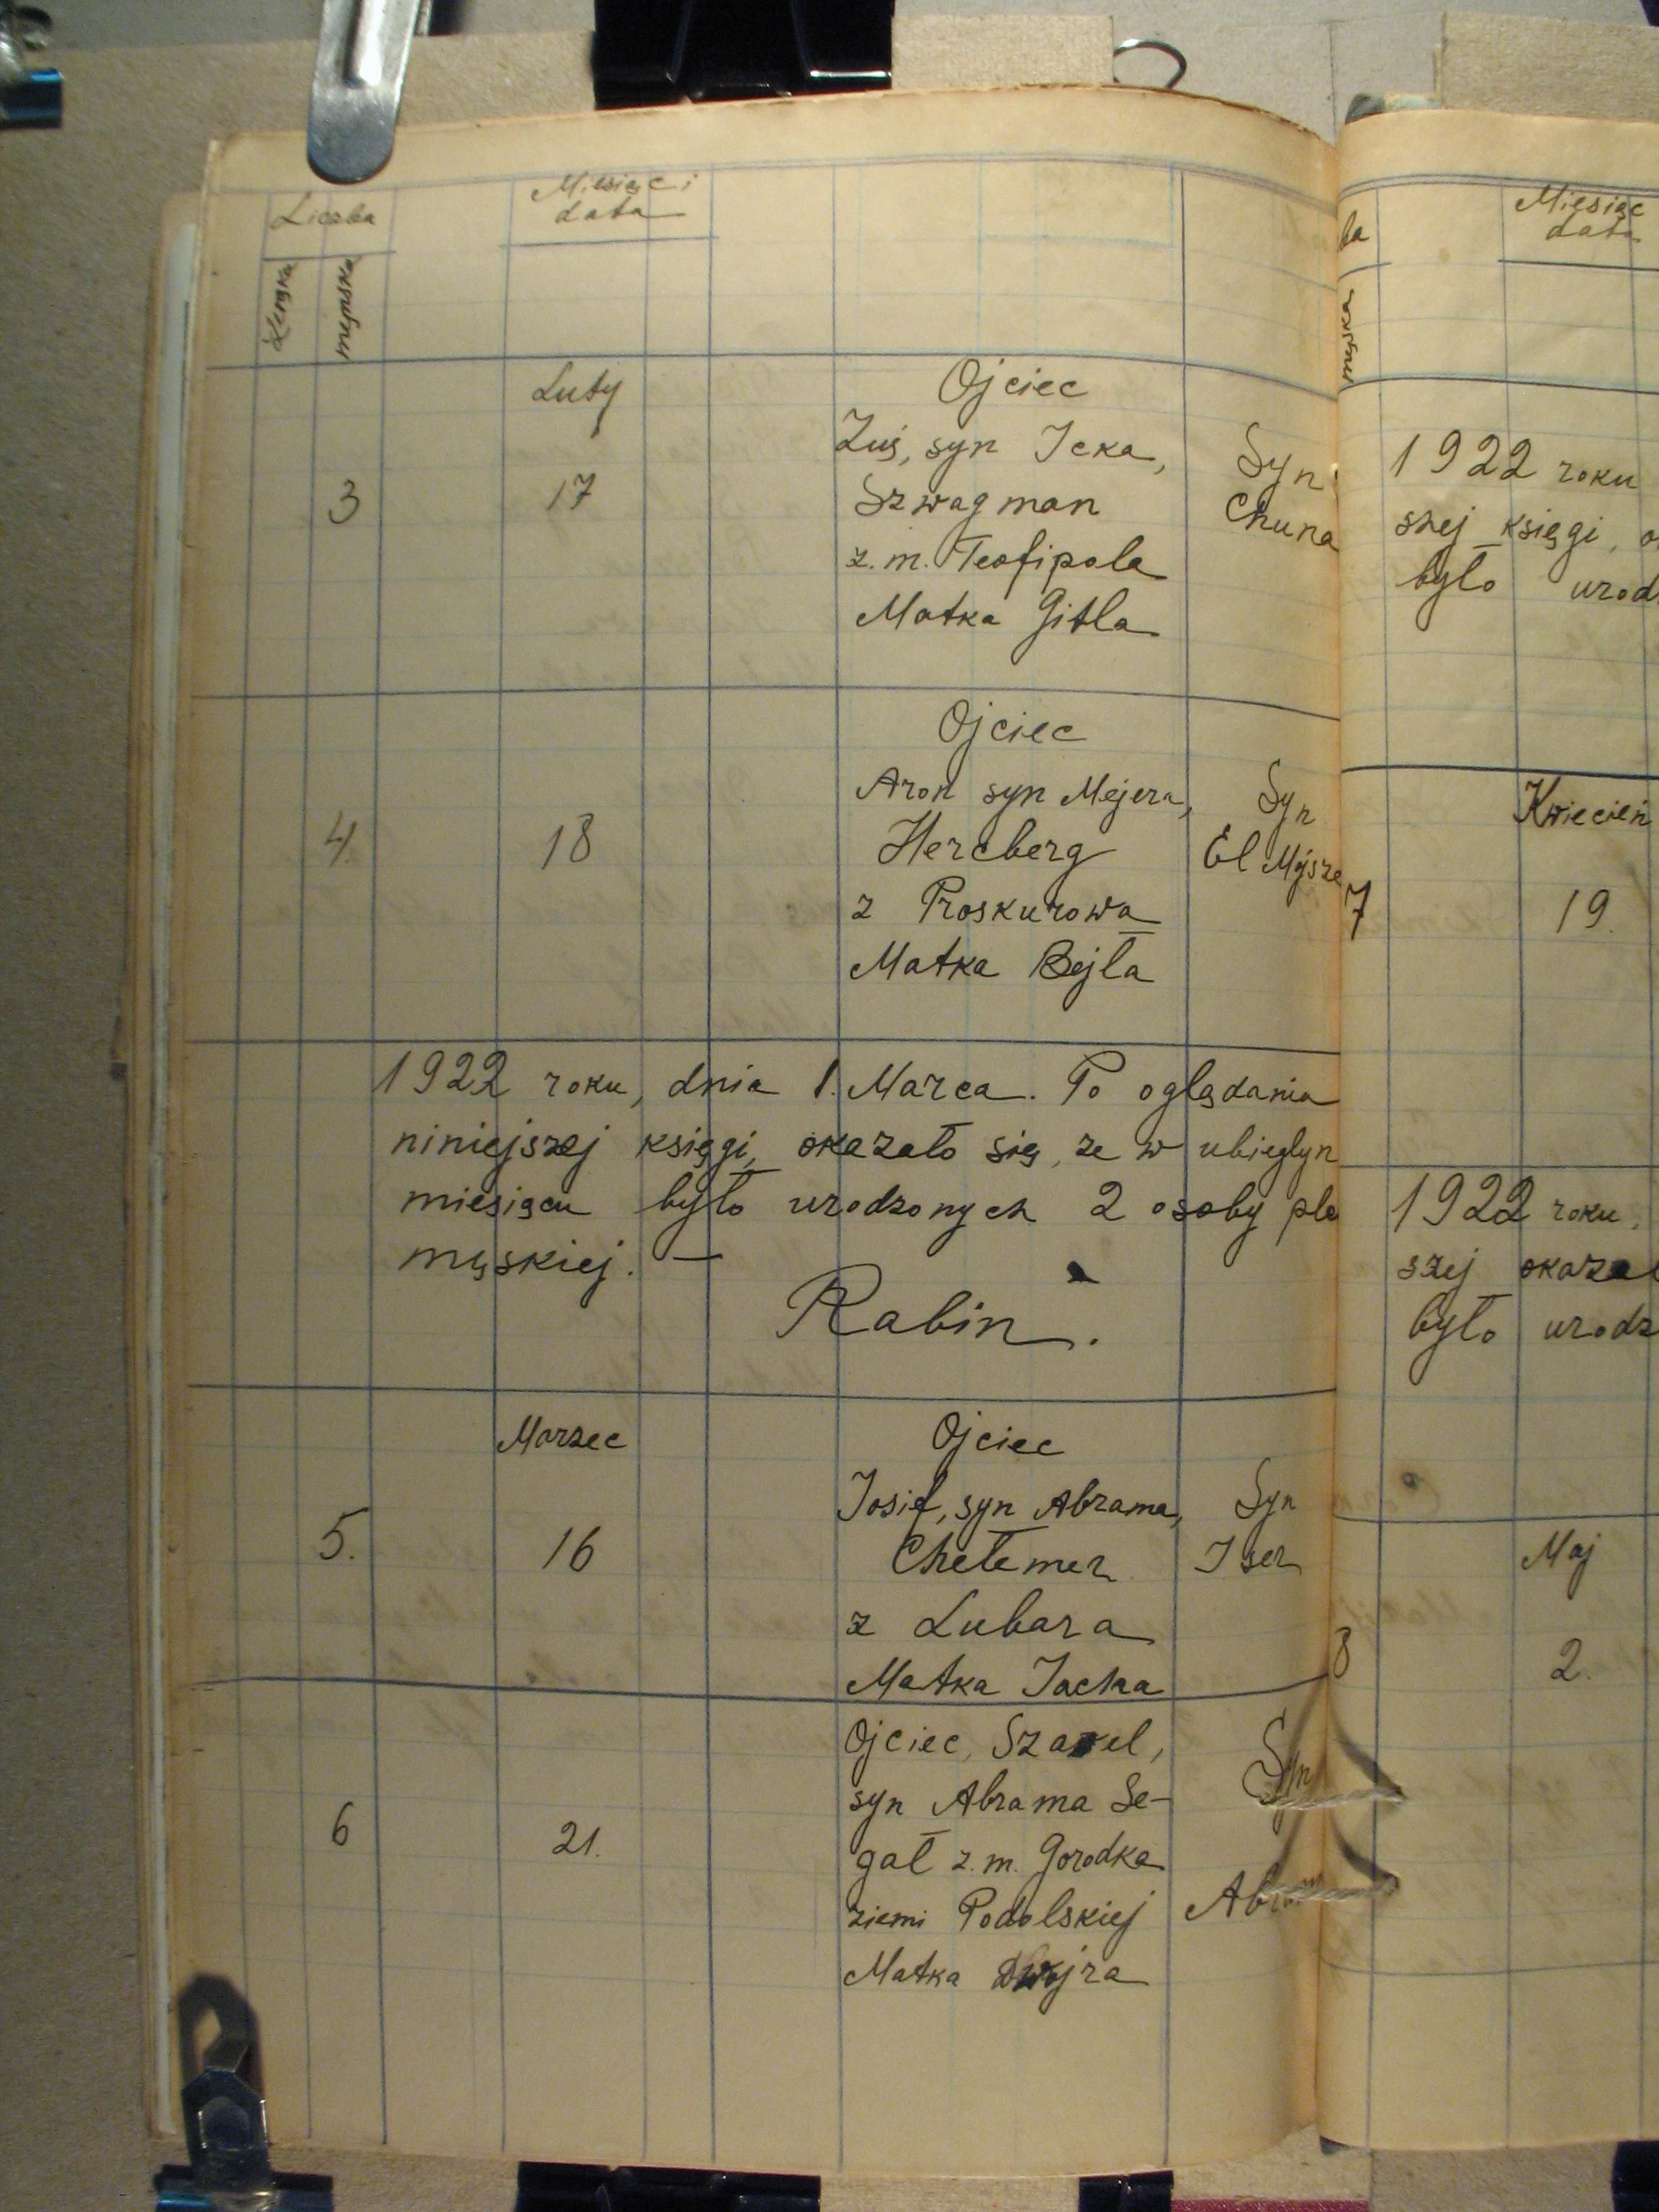 Liczba
Miesiąc i
data
Żeńska
męnska
Luty
3
17
Ojciec
Zuś, syn Icka,
Szwagman
z. m. Teofipola
Matka Gitla
Syn
Chuna
4.
18
Ojciec
Aron syn Mejera,
Hercberg
z Proskurowa
Matka Bejła
Syn
El Mysze
1922 roku, dnia 1. Marca. Po oglądania
niniejszej księgi, okazało się, ze w ubiegłyn
miesiącu było urodzonych 2 osoby płe
męskiej. —
Rabin.
Marzec
5.
16
Ojciec
Josif, syn Abrama,
Chełemer
z Lubara
Matka Jacha
Syn
Iser
6
21.
Ojciec, Szakel,
syn Abrama Se-
gał z. m. Gorodka
ziemi Podolskiej
Matka Dwojra
Syn
Abram
Miesiąc
data
1922 roku
szej księgi, o
było urod
Kwiecień
7
19.
1922 roku,
szej okazał
było urodz
Maj
8
2.